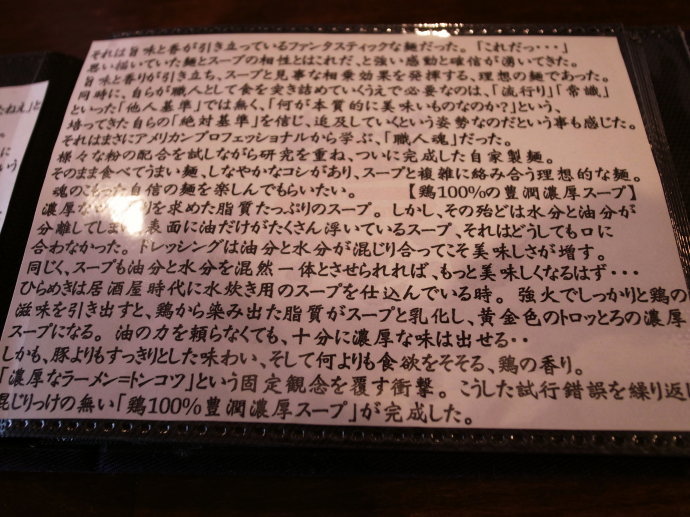 たねえ」と
それは旨味と香が引き立っているファンタスティックな麺だった。「これだっ・・・」
思い描いていた麺とスープの相性とはこれだ、と強い感動と確信が湧いてきた。
旨味と香りが引き立ち、スープと見事な相乗効果を発揮する、理想の麺であった。
同時に、自らが職人として食を突き詰めていくうえで必要なのは、「流行り」「常識」
といった「他人基準」では無く、「何が本質的に美味いものなのか?」という、
培ってきた自らの「絶対基準」を信じ、追及していくという姿勢なのだという事も感じた。
それはまさにアメリカンプロフェッショナルから学ぶ、「職人魂」だった。
様々な粉の配合を試しながら研究を重ね、ついに完成した自家製麺。
そのまま食べてうまい麺、しなやかなコシがあり、スープと複雑に絡み合う理想的な麺。
魂のこもった自信の麺を楽しんでもらいたい。 【鶏100%の豊潤濃厚スープ】
濃厚な を求めた脂質たっぷりのスープ。しかし、その殆どは水分と油分が
分離してしまい 表面に油だけがたくさん浮いているスープ、それはどうしても口に
合わなかった。ドレッシングは油分と水分が混じり合ってこそ美味しさが増す。
同じく、スープも油分と水分を混然一体とさせられれば、もっと美味しくなるはず・・・
ひらめきは居酒屋時代に水炊き用のスープを仕込んでいる時。強火でしっかりと鶏の
滋味を引き出すと、鶏から染み出た脂質がスープと乳化し、黄金色のトロッとろの濃厚
スープになる。油の力を頼らなくても、十分に濃厚な味は出せる・・
しかも、豚よりもすっきりとした味わい、そして何よりも食欲をそそる、鶏の香り。
「濃厚なラーメン=トンコツ」という固定観念を覆す衝撃。こうした試行錯誤を繰り返し
混じりっけの無い「鶏100%豊潤濃厚スープ」が完成した。